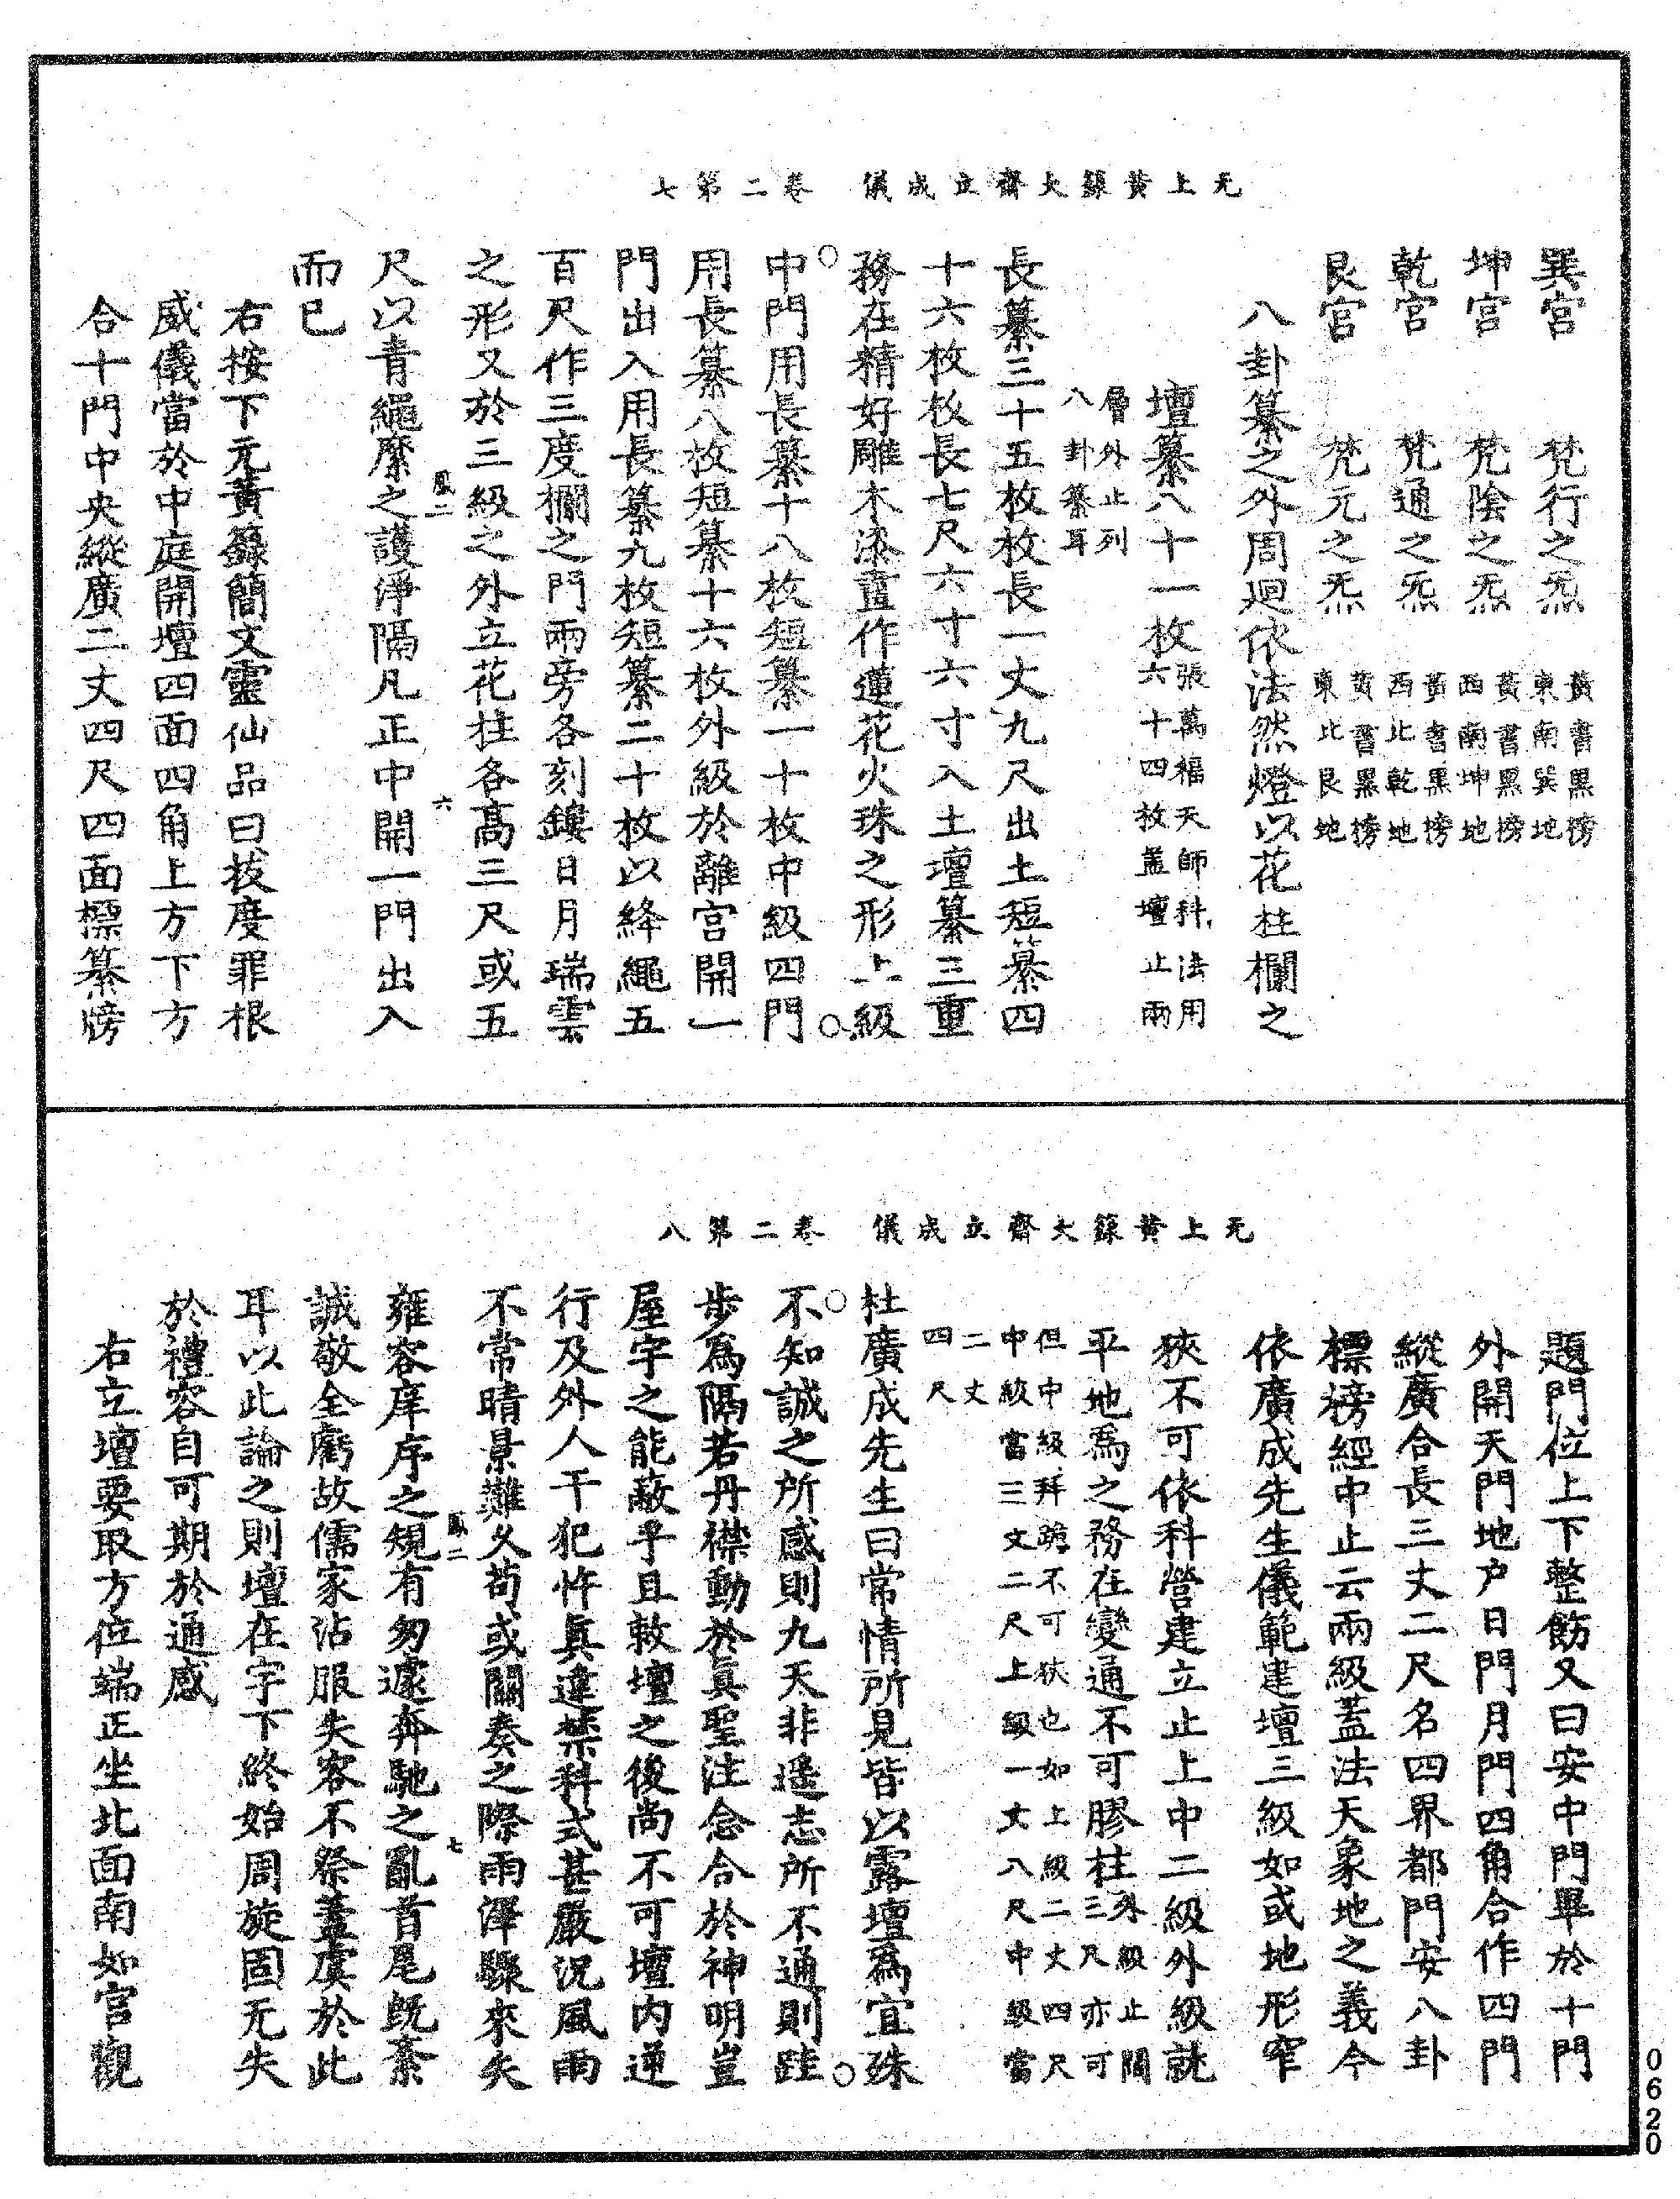 无上黃籙大齋立成儀　卷二第七
巽宮　梵行之炁　黃書黑榜東南巽地
坤宮　梵陰之炁　黃書黑榜西南坤地
乾宮　梵通之炁　黃書黑榜西北乾地
艮宮　梵元之炁　黃書黑榜東北艮地
八卦纂之外周迴依法然燈以花柱欄之
壇纂八十一枚張萬福天師科法用六十四枚蓋壇止兩
層外止列八卦纂耳
長纂三十五枚枚長一丈九尺出土短纂四
十六枚枚長七尺六寸六寸入土壇纂三重
務在精好雕木漆畫作蓮花火珠之形上級
中門用長纂十八枚短纂一十枚中級四門
用長纂八枚短纂十六枚外級於離宮開一
門出入用長纂九枚短纂二十枚以絳繩五
百尺作三度欄之門兩旁各刻鏤日月瑞雲
之形又於三級之外立花柱各高三尺或五
鳳二　六
尺以青繩縻之護淨隔凡正中開一門出入
而已
右按下元黃籙簡文靈仙品曰拔度罪根
威儀當於中庭開壇四面四角上方下方
合十門中央縱廣二丈四尺四面標纂牓
无上黃籙大齋立成儀　卷二第八
題門位上下整飭又曰安中門畢於十門
外開天門地戶日門月門四角合作四門
縱廣合長三丈二尺名四界都門安八卦
標榜經中止云兩級蓋法天象地之義今
依廣成先生儀範建壇三級如或地形窄
狹不可依科營建立止上中二級外級就
平地為之務在變通不可膠柱外級止闊三尺亦可
但中級拜跪不可狹也如上級二丈四尺中級當三丈二尺上級一丈八尺中級當
二丈四尺
杜廣成先生曰常情所見皆以露壇為宜殊
不知誠之所感則九天非遥志所不通則跬
步為隔若丹襟動於眞聖注念合於神明豈
屋宇之能蔽乎且敕壇之後尚不可壇內逆
行及外人干犯忤眞違禁科式甚嚴況風雨
不常晴景難久苟或關奏之際雨澤驟來矢
鳳二　七
雍容庠序之規有匆遽奔馳之亂首尾旣紊
誠敬全虧故儒家沾服失容不祭蓋虞於此
耳以此論之則壇在宇下終始周旋固无失
於禮容自可期於通感
右立壇要取方位端正坐北面南如宮觀
0620